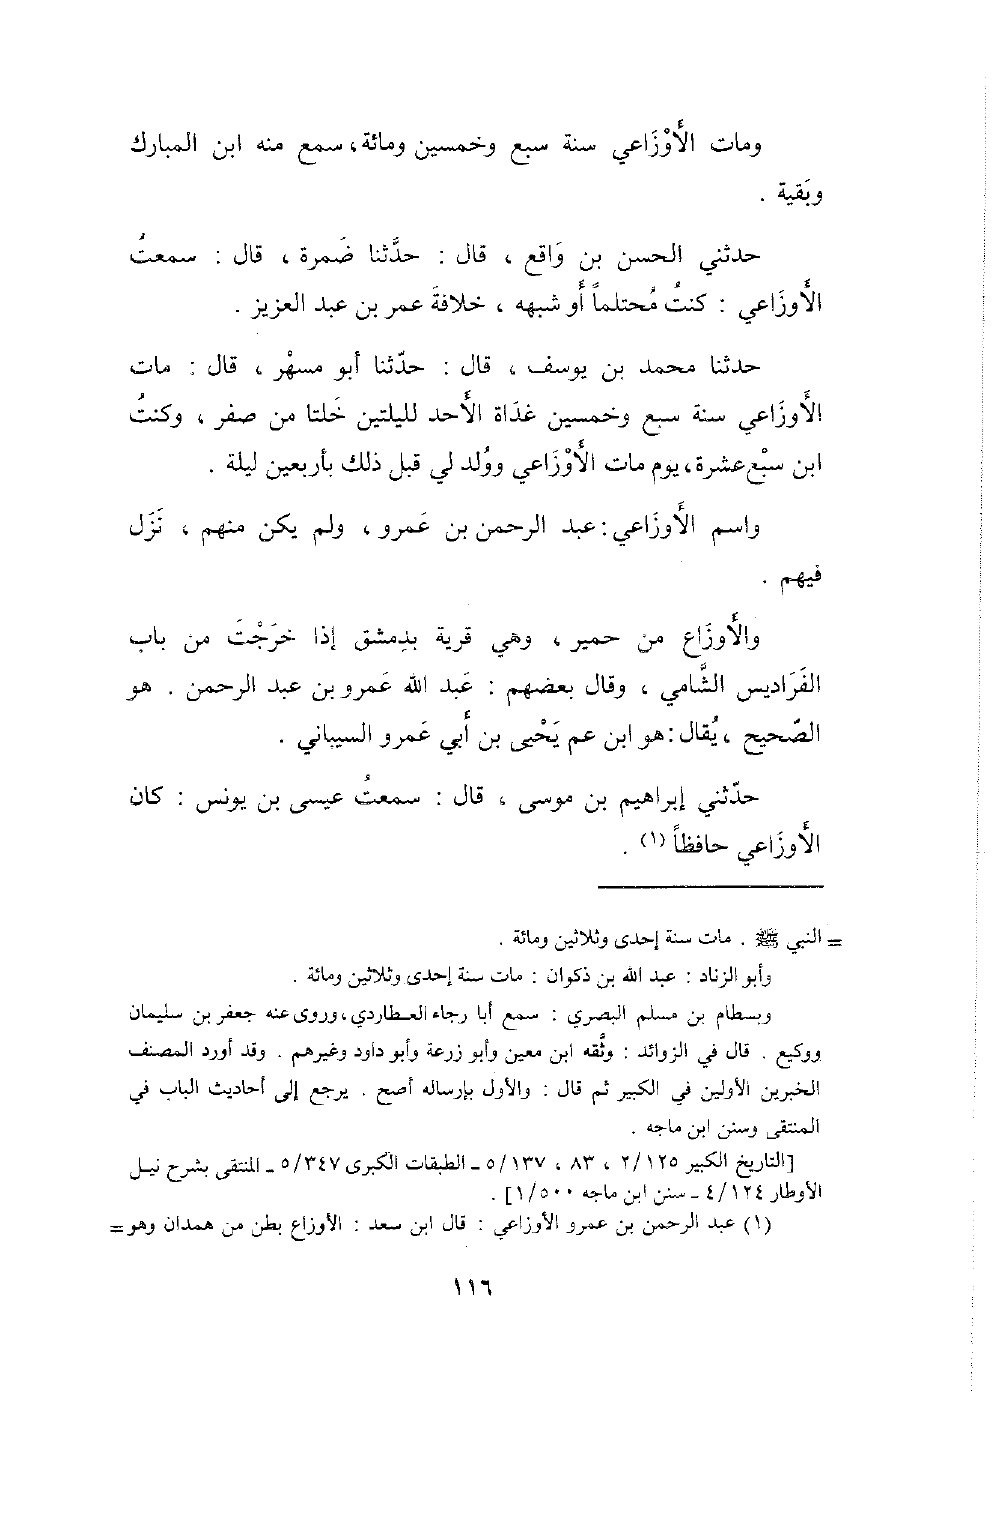 ومات الأَوْزَاعي سنة سبع وخمسين ومائة، سمع منه ابن المبارك
وبَقية .
حدثني الحسن بن وَاقع ، قال : حدَّثنا ضَمرة ، قال : سمعتُ
الأَوزَاعي : كنتُ مُحتلماً أَو شبهه ، خلافةَ عمر بن عبد العزيز .
حدثنا محمد بن يوسف ، قال : حدّثنا أبو مسهْر ، قال : مات
الأَوزَاعي سنة سبع وخمسين غدَاة الأَحد لليلتين خَلتا من صفر ، وكنتُ
ابن سبْع عشرة، يوم مات الأَوْزَاعي ووُلد لي قبل ذلك بأربعين ليلة .
واسم الأَوزَاعي : عبد الرحمن بن عَمرو ، ولم يكن منهم ، نَزَل
فيهم .
والأَوزَاع من حمير ، وهي قرية بدِمشق إذا خرَجْتَ من باب
الفَرَاديس الشَّامي ، وقال بعضهم : عَبد الله عَمرو بن عبد الرحمن . هو
الصّحيح ، يُقال : هو ابن عم يَحْيى بن أَبي عَمرو السيباني .
حدّثني إبراهيم بن موسى ، قال : سمعتُ عيسى بن يونس : كان
الأَوزَاعي حافظاً (١) .
= النبي ﷺ . مات سنة إحدى وثلاثين ومائة .
وأبو الزناد : عبد الله بن ذكوان : مات سنة إحدى وثلاثين ومائة .
وبسطام بن مسلم البصري : سمع أبا رجاء العطاردي، وروى عنه جعفر بن سليمان
ووكيع . قال في الزوائد : وثَّقه ابن معين وأبو زرعة وأبو داود وغيرهم . وقد أورد المصنف
الخبرين الأولين في الكبير ثم قال : والأول بإرساله أصح . يرجع إلى أحاديث الباب في
المنتقى وسنن ابن ماجه .
[التاريخ الكبير ٢/١٢٥ ، ٨٣ ، ٥/١٣٧ ـ الطبقات الكبرى ٥/٣٤٧ ـ المنتقى بشرح نيل
الأوطار ٤/١٢٤ ـ سنن ابن ماجه ١/٥٠٠] .
(١) عبد الرحمن بن عمرو الأوزاعي : قال ابن سعد : الأوزاع بطن من همدان وهو =
١١٦